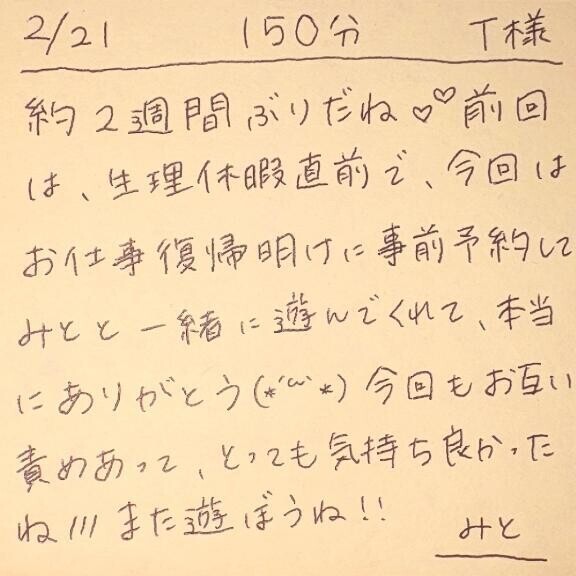 2/21 150分 T様
約2週間ぶりだね♡♡前回
は、生理休暇直前で、今回は
お仕事復帰明けに事前予約して
みとと一緒に遊んでくれて、本当
にありがとう(*´ω`*)今回もお互い
責めあって、とっても気持ち良かった
ね!!!また遊ぼうね!!
みと